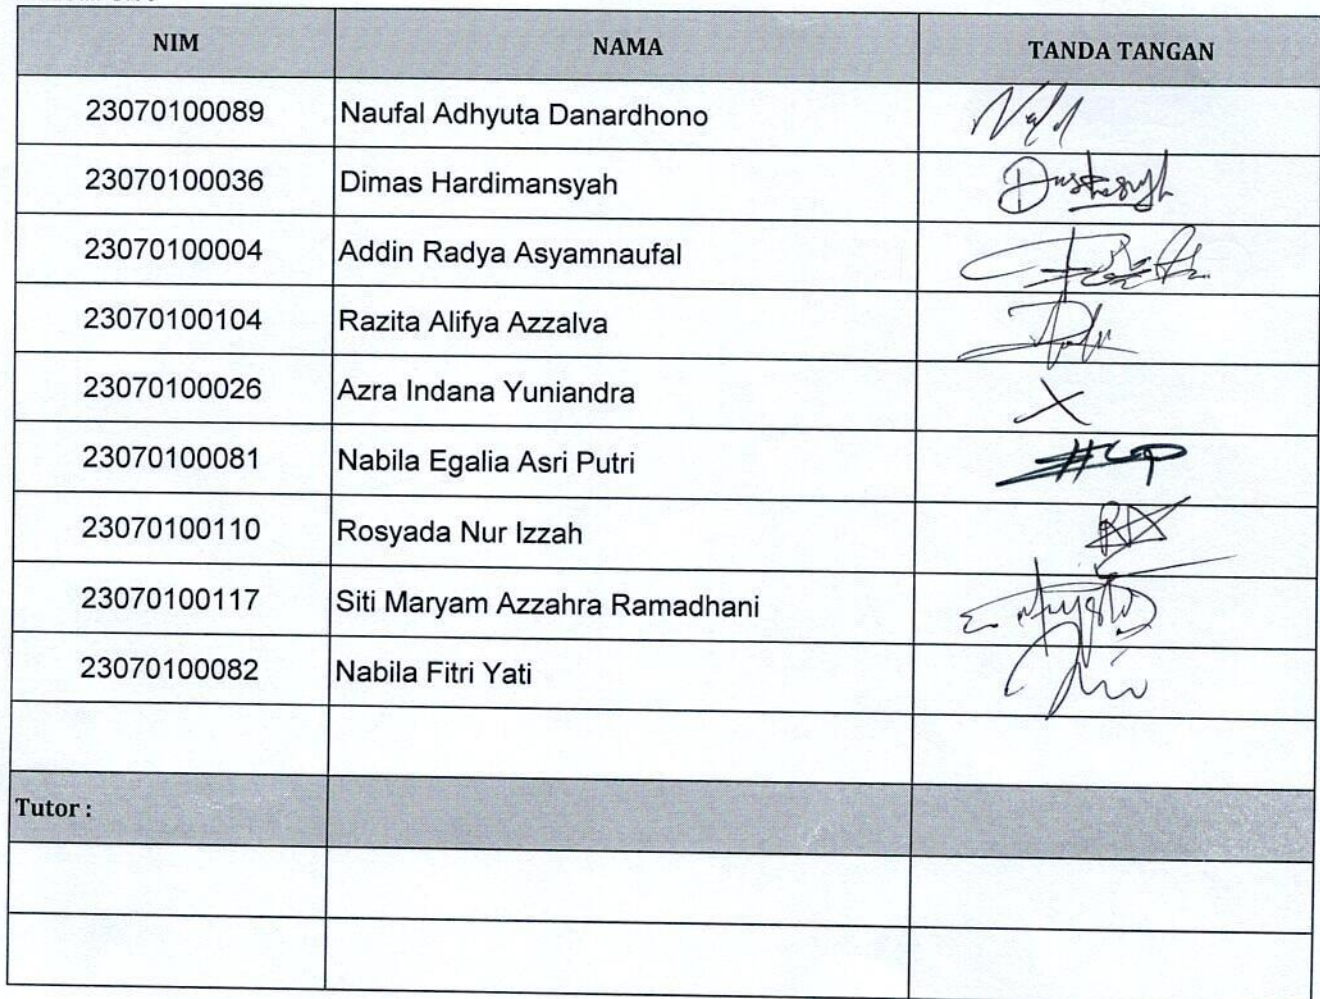 NIM NAMA TANDA TANGAN
23070100089 Naufal Adhyuta Danardhono
23070100036 Dimas Hardimansyah
23070100004 Addin Radya Asyamnaufal
23070100104 Razita Alifya Azzalva
23070100026 Azra Indana Yuniandra X
23070100081 Nabila Egalia Asri Putri
23070100110 Rosyada Nur Izzah
23070100117 Siti Maryam Azzahra Ramadhani
23070100082 Nabila Fitri Yati
Tutor :